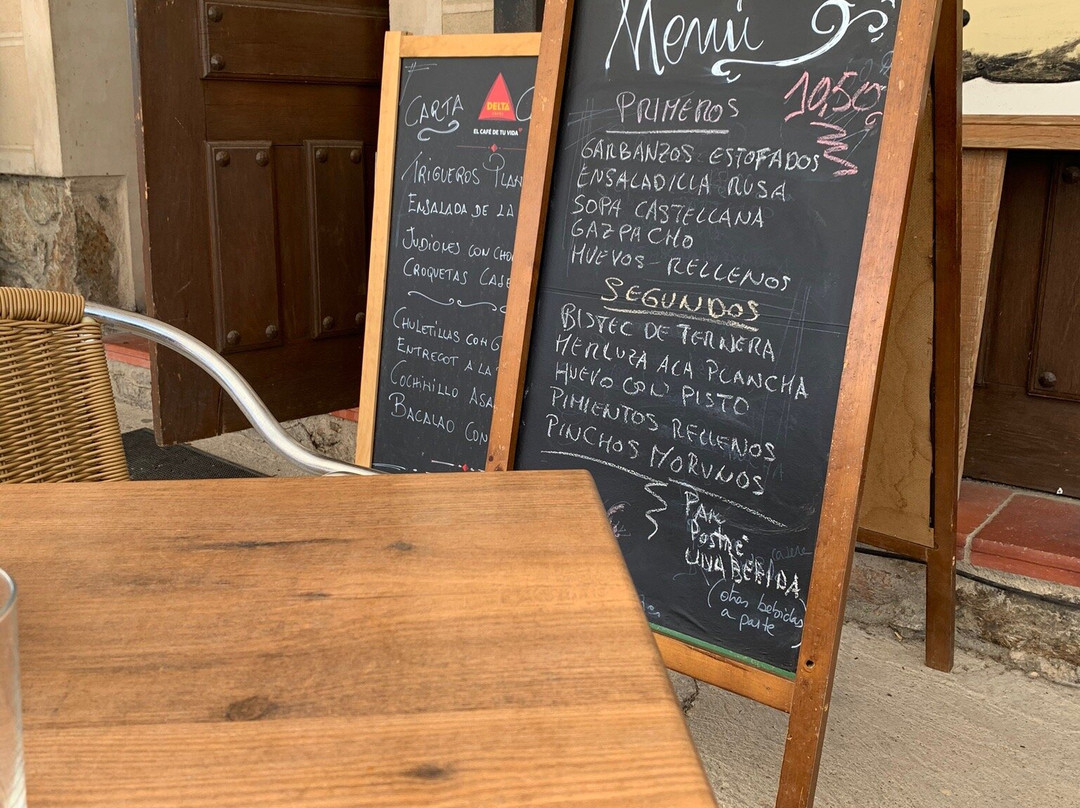 CARTA
DELTA
EL CAFÉ DE TU VIDA
TRIGUEROS PLAN
ENSALADA DE LA
JUDIONES CON CHO
CROQUETAS CASE
CHULETILLAS CON G
ENTRECOT A LA
COCHINILLO ASA
BACALAO CON
Menú
10,50
PRIMEROS
GARBANZOS ESTOFADOS
ENSALADILLA RUSA
SOPA CASTELLANA
GAZPACHO
HUEVOS RELLENOS
SEGUNDOS
BISTEC DE TERNERA
MERLUZA A LA PLANCHA
HUEVO CON PISTO
PIMIENTOS RELLENOS
PINCHOS MORUNOS
PAN
Postre
UNA BEBIDA
(otras bebidas
a parte